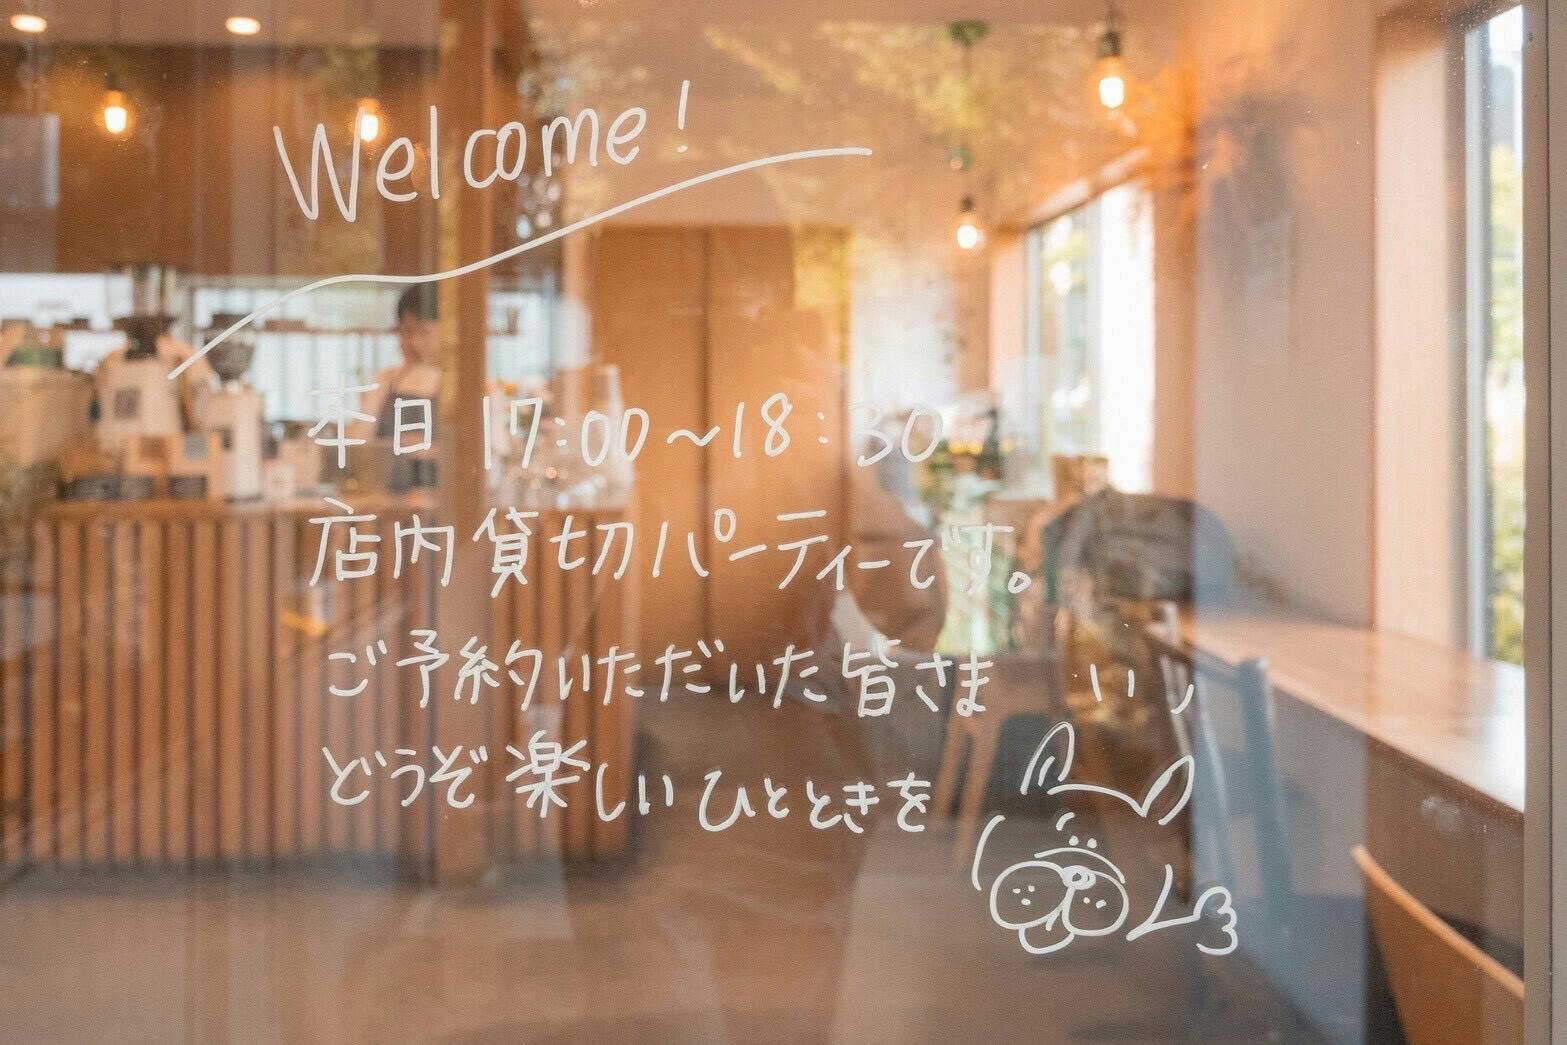 Welcome!
本日 17:00～18:30
店内貸切パーティーです。
ご予約いただいた皆さま
どうぞ楽しいひとときを